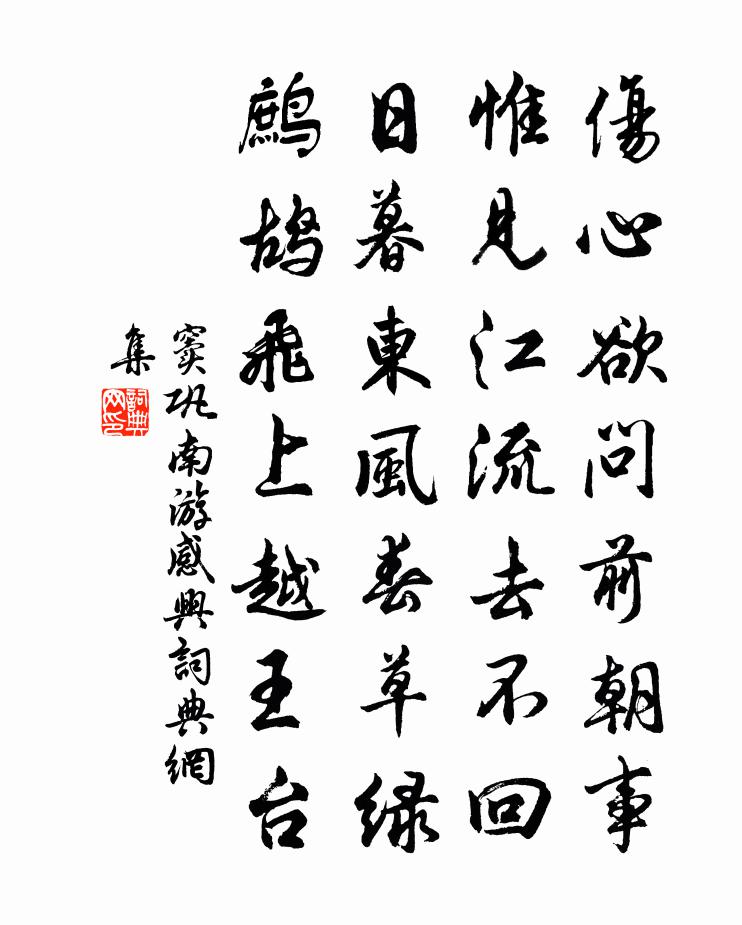 傷心欲問前朝事
惟見江流去不回
日暮東風春草緑
鷓鴣飛上越王台
竇巩南游感興詞典網
集
詞典
网印